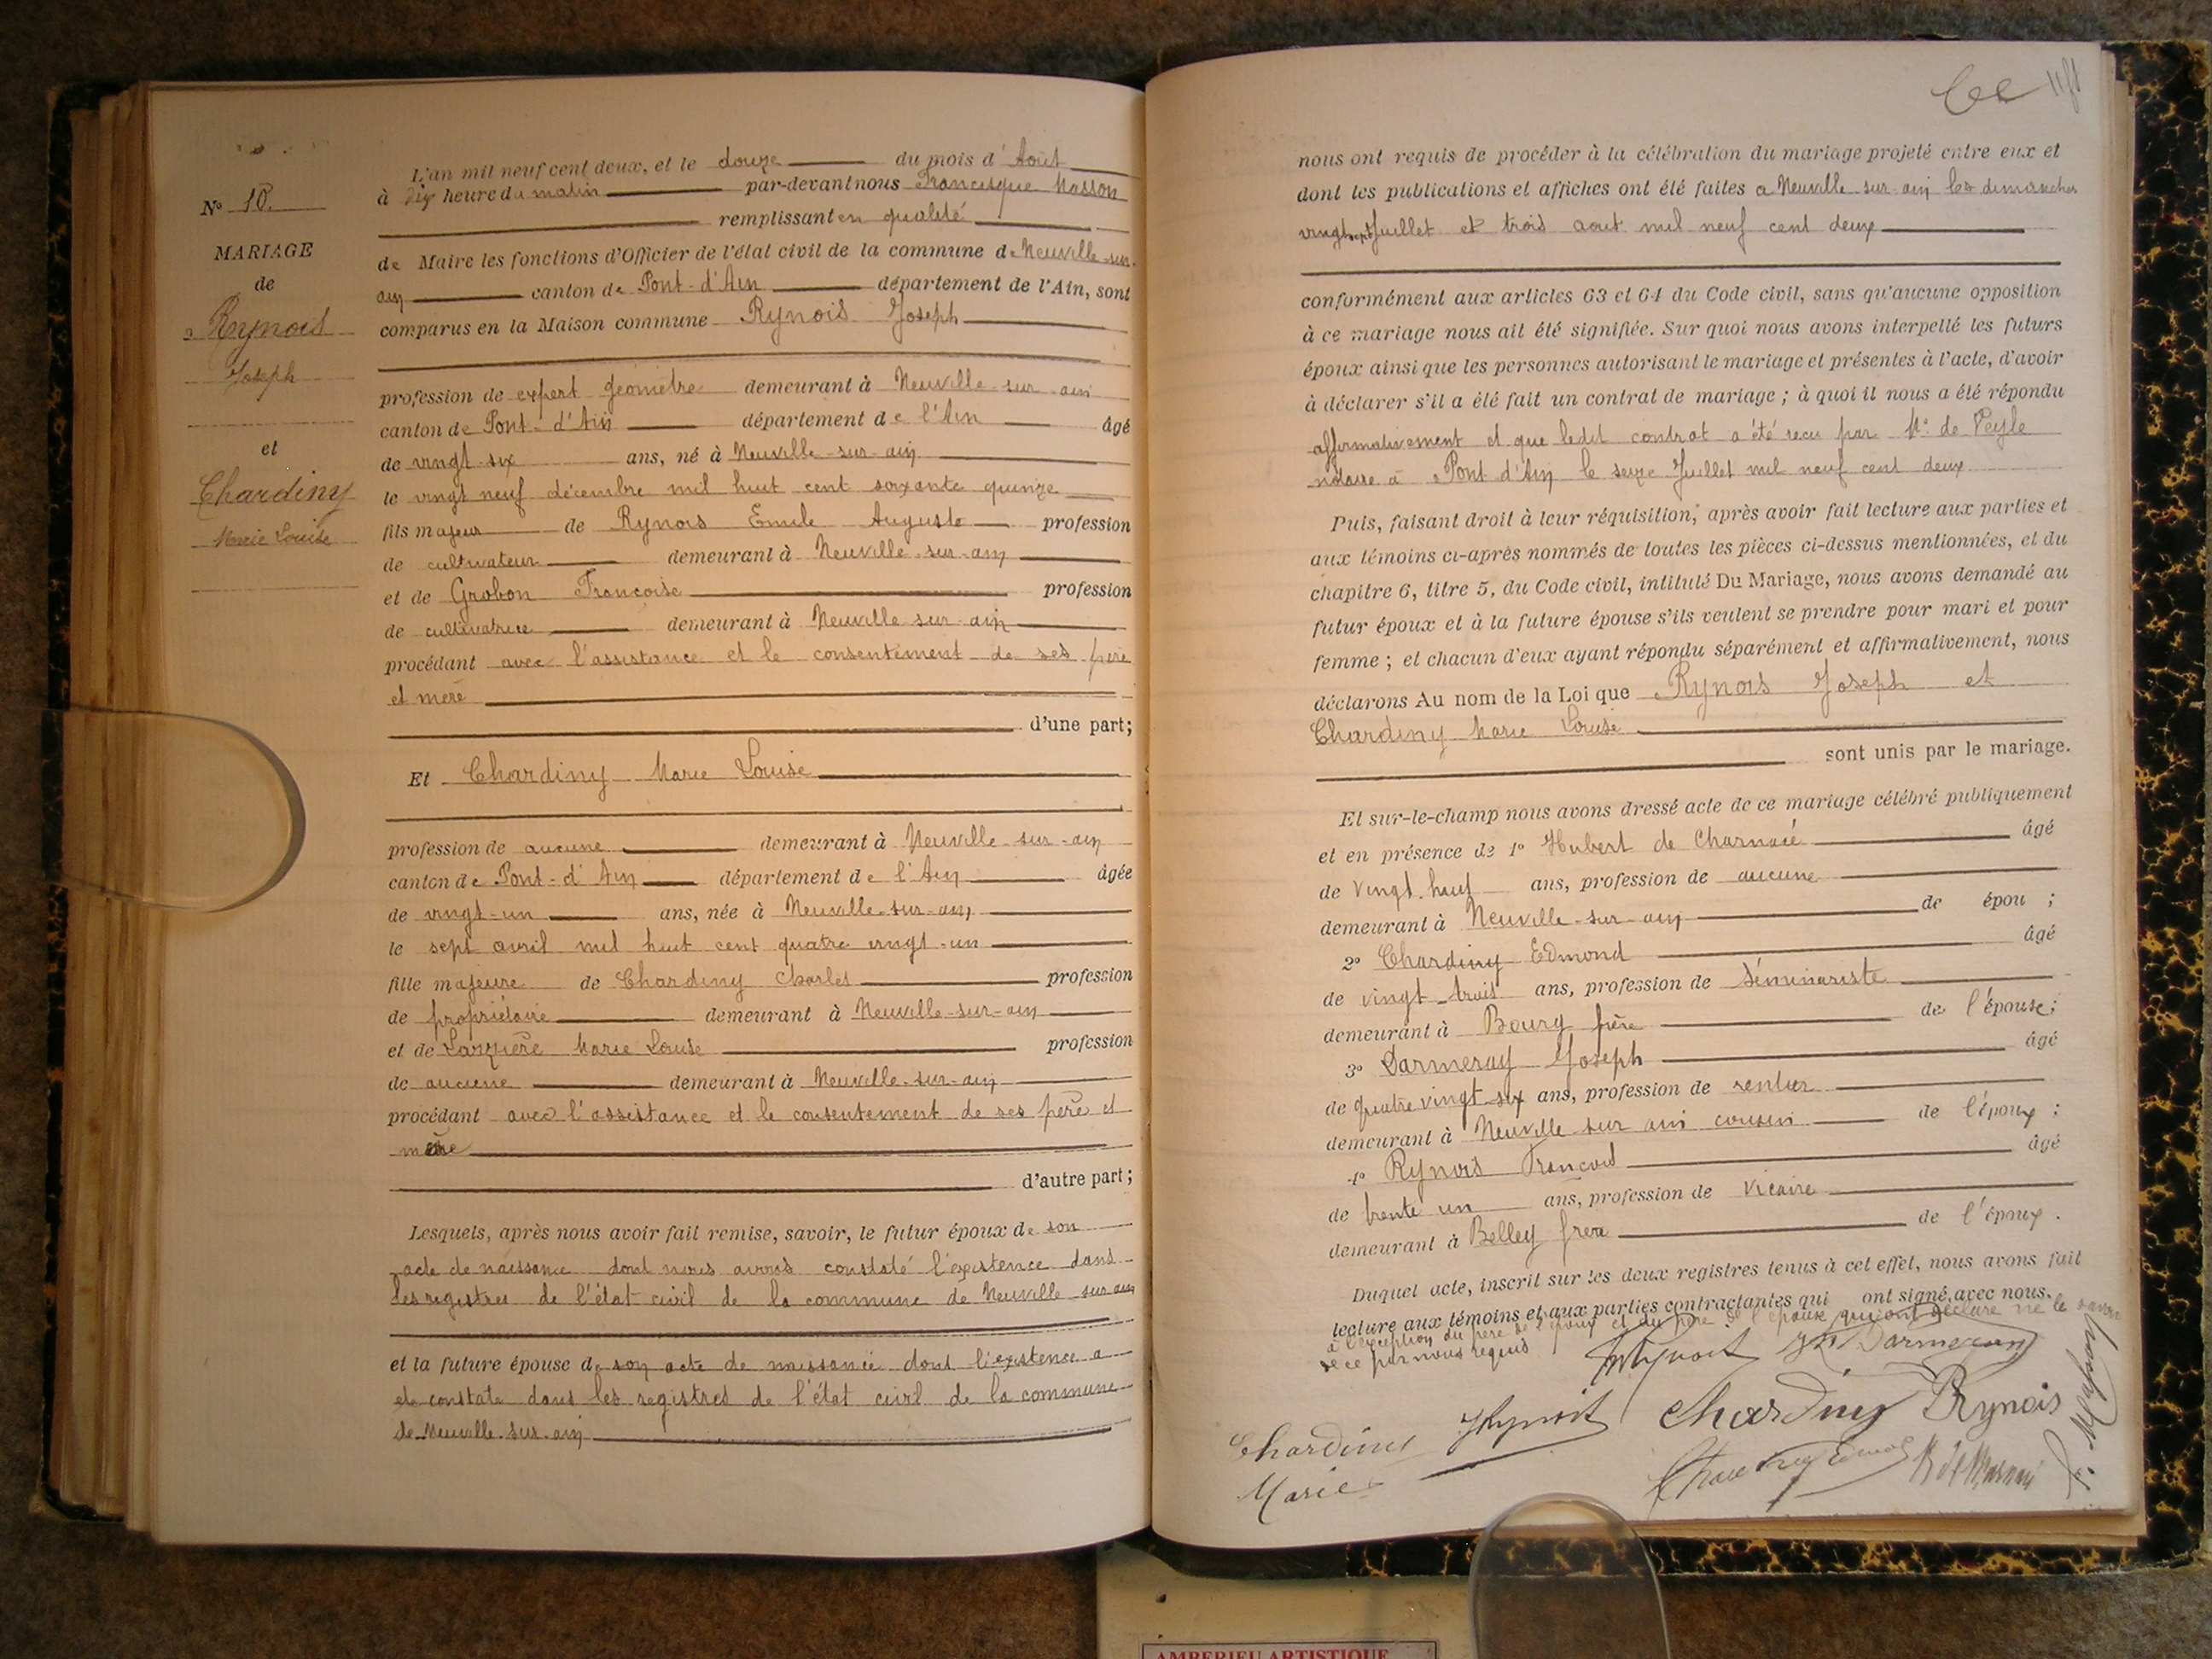 N° 10.
MARIAGE
de
Rynois
Joseph
et
Chardiny
Marie Louise
L'an mil neuf cent deux, et le douze du mois d'Août
à dix heure du matin par-devant nous Francisque Masson
remplissant en qualité
de Maire les fonctions d'Officier de l'état civil de la commune de Neuville-sur-
ain canton de Pont-d'Ain département de l'Ain, sont
comparus en la Maison commune Rynois Joseph
profession de expert géomètre demeurant à Neuville-sur-ain
canton de Pont-d'Ain département de l'Ain âgé
de vingt-six ans, né à Neuville-sur-ain
le vingt neuf décembre mil huit cent soixante quinze
fils majeur de Rynois Emile Auguste profession
de cultivateur demeurant à Neuville-sur-ain
et de Grobon Françoise profession
de cultivatrice demeurant à Neuville-sur-ain
procédant avec l'assistance et le consentement de ses père
et mère
d'une part;
Et Chardiny Marie Louise
profession de aucune demeurant à Neuville-sur-ain
canton de Pont-d'Ain département de l'Ain âgée
de vingt-un ans, née à Neuville-sur-ain
le sept avril mil huit cent quatre vingt-un
fille majeure de Chardiny Charles profession
de propriétaire demeurant à Neuville-sur-ain
et de Marie Louise profession
de aucune demeurant à Neuville-sur-ain
procédant avec l'assistance et le consentement de ses père et
mère
d'autre part;
Lesquels, après nous avoir fait remise, savoir, le futur époux de son
acte de naissance dont nous avons constaté l'existence dans
les registres de l'état civil de la commune de Neuville-sur-ain
et la future épouse de son acte de naissance dont l'existence a
été constaté dans les registres de l'état civil de la commune
de Neuville-sur-ain
nous ont requis de procéder à la célébration du mariage projeté entre eux et
dont les publications et affiches ont été faites a Neuville-sur-ain les dimanches
vingt sept Juillet et trois aout mil neuf cent deux
conformément aux articles 63 et 64 du Code civil, sans qu'aucune opposition
à ce mariage nous ait été signifiée. Sur quoi nous avons interpellé les futurs
époux ainsi que les personnes autorisant le mariage et présentes à l'acte, d'avoir
à déclarer s'il a été fait un contrat de mariage ; à quoi il nous a été répondu
affirmativement et que ledit contrat a été recu par Me de Peyle
notaire à Pont d'Ain le seize Juillet mil neuf cent deux
Puis, faisant droit à leur réquisition, après avoir fait lecture aux parties et
aux témoins ci-après nommés de toutes les pièces ci-dessus mentionnées, et du
chapitre 6, titre 5, du Code civil, intitulé Du Mariage, nous avons demandé au
futur époux et à la future épouse s'ils veulent se prendre pour mari et pour
femme ; et chacun d'eux ayant répondu séparément et affirmativement, nous
déclarons Au nom de la Loi que Rynois Joseph et
Chardiny Marie Louise
sont unis par le mariage.
Et sur-le-champ nous avons dressé acte de ce mariage célébré publiquement
et en présence de 1° Hubert de Charnacé âgé
de vingt-neuf ans, profession de aucune
demeurant à Neuville-sur-ain de épou ;
2° Chardiny Edmond âgé
de vingt-trois ans, profession de séminariste
demeurant à Bourg frère de l'épouse;
3° Darmeray Joseph âgé
de quatre vingt-six ans, profession de rentier
demeurant à Neuville sur ain cousin de l'époux ;
4° Rynois François âgé
de trente un ans, profession de Vicaire
demeurant à Belley frère de l'époux.
Duquel acte, inscrit sur les deux registres tenus à cet effet, nous avons fait
lecture aux témoins et aux parties contractantes qui ont signé avec nous.
à l'exception du père de l'époux et du père de l'épouse qui ont déclaré ne le savoir
de ce par nous requis
Rynois Jh Darmeray
Chardiny JRynois Chardiny Rynois
Marie Chardiny Edmond
AMBERIEU ARTISTIQUE